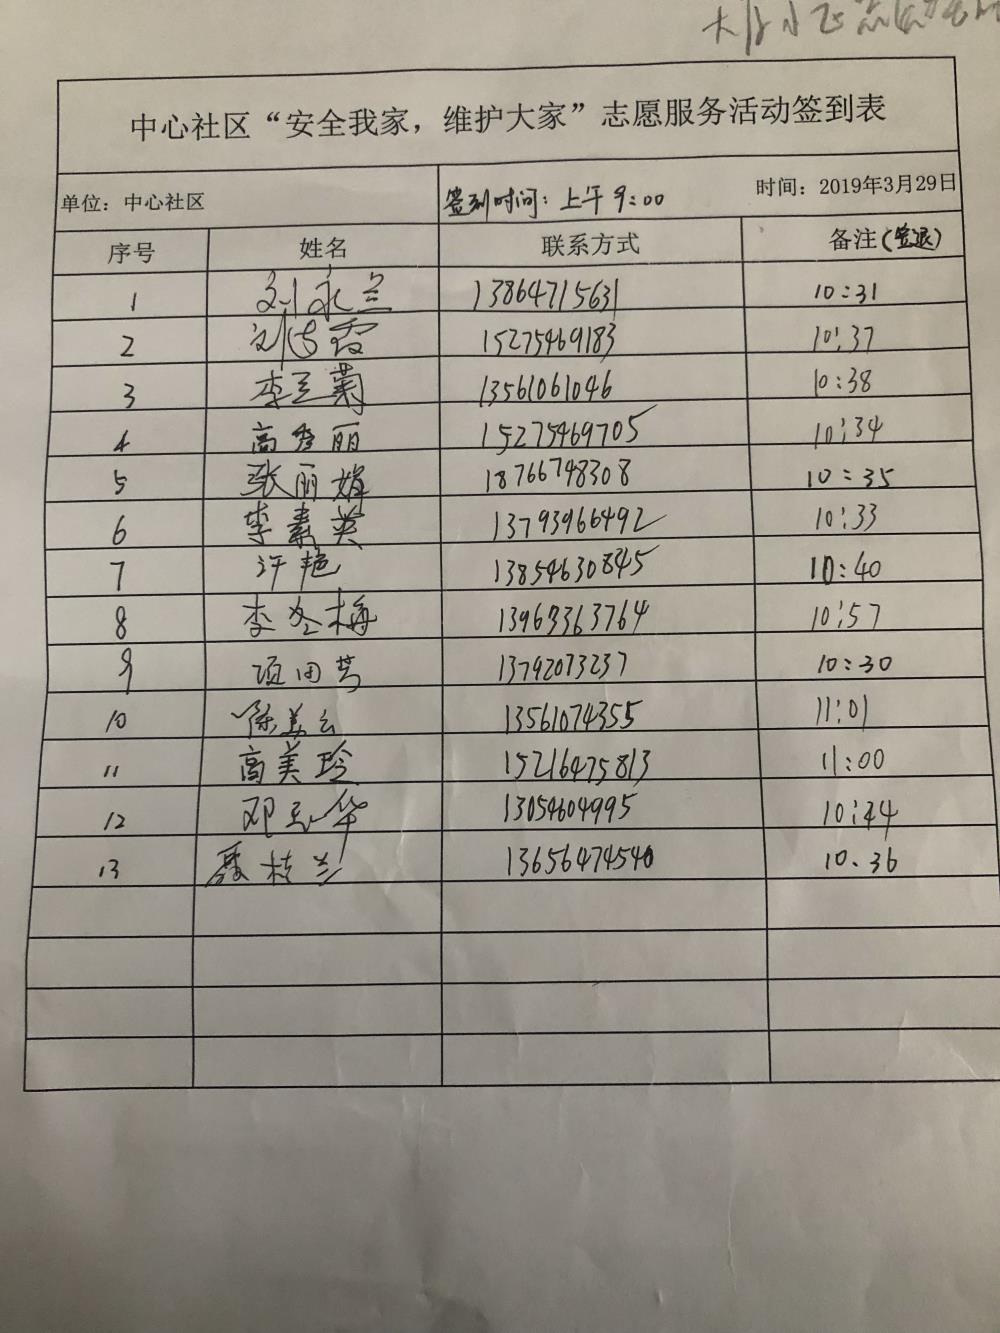 中心社区“安全我家，维护大家”志愿服务活动签到表
单位：中心社区 签到时间：上午 9:00 时间：2019年3月29日
序号 姓名 联系方式 备注(签退)
1 刘永兰 13864715631 10:31
2 刘 霞 15275469183 10:37
3 李兰菊 13561061046 10:38
4 高秀丽 15275469705 10:34
5 张丽娟 18766748308 10:35
6 李素英 13793966492 10:33
7 许艳 13854630845 10:40
8 李冬梅 13963363764 10:57
9 项田芳 13792073237 10:30
10 陈美云 13561074355 11:01
11 高美玲 15216475813 11:00
12 邓玉华 13054604995 10:44
13 聂桂兰 13656474540 10.36